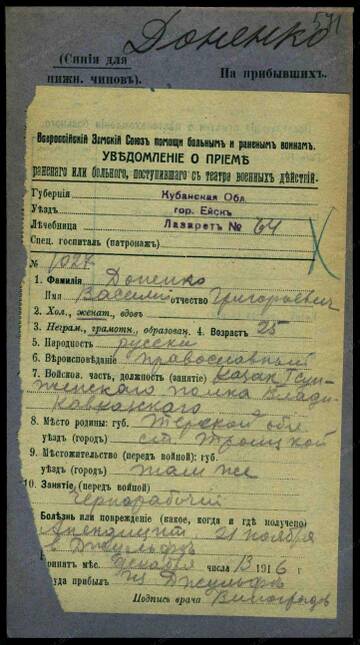 Доненко
571
(Синія для
нижн. чиновъ).
На прибывшихъ.
Всероссійскій Земскій Союзъ помощи больнымъ и раненымъ воинамъ.
УВѢДОМЛЕНІЕ О ПРІЕМѢ
раненаго или больного, поступившаго съ театра военныхъ дѣйствій.
Губернія Кубанская Обл.
Уѣздъ гор. Ейскъ
Лечебница Лазаретъ № 64
Спец. госпиталь (патронажъ)
№ 1027
1. Фамилія Доненко
Имя Василий отчество Григорьевич
2. Хол., женат., вдовъ
3. Неграм., грамотн., образован. 4. Возрастъ 25
5. Народность русский
6. Вѣроисповѣданіе православный
7. Войсков. часть, должность (занятіе) Казак 1 Сун-
женского полка Влади-
кавказского
8. Мѣсто родины: губ. Терской обл
уѣздъ (городъ) ст Троицкой
9. Мѣстожительство (передъ войной): губ.
уѣздъ (городъ) там же
10. Занятіе (передъ войной)
чернорабочий
Болѣзнь или поврежденіе (какое, когда и гдѣ получено)
Апендицит 21 ноября
в Джульфѣ
Принятъ мѣс. декабря числа 13 1916 г
Откуда прибылъ из Джульфы
Подпись врача Виноградов